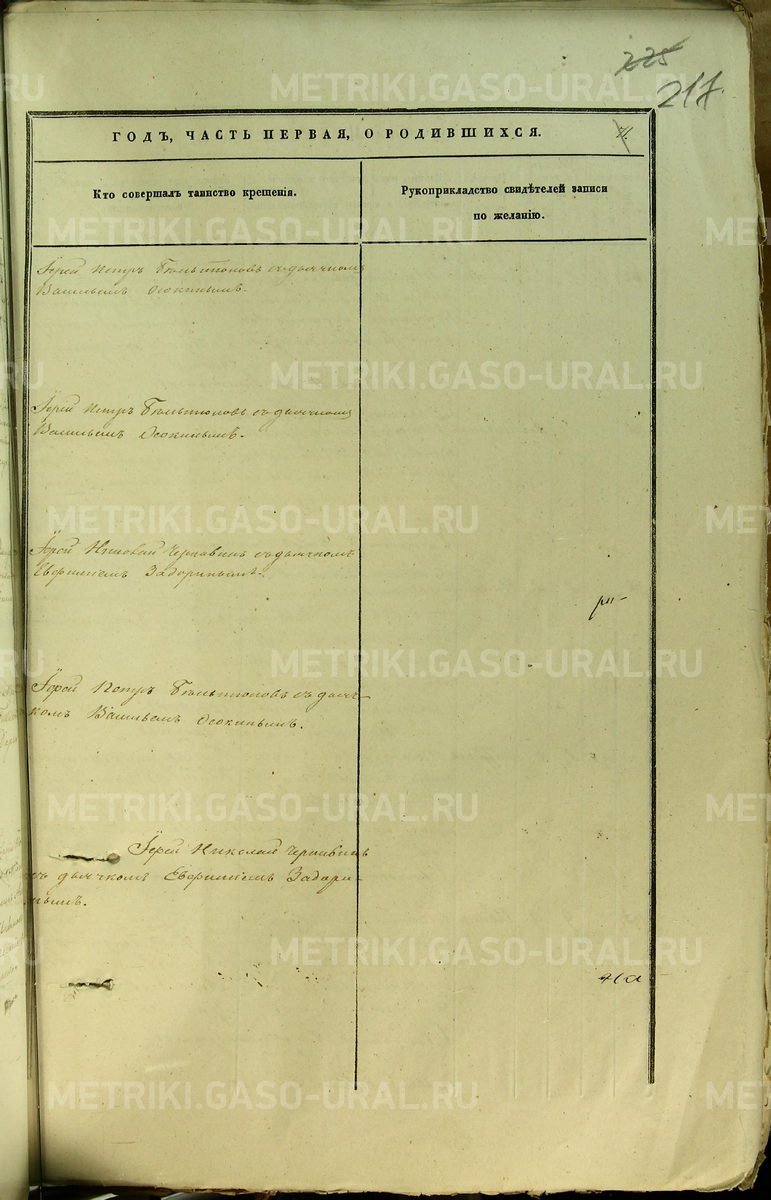 225
217.
ГОДЪ, ЧАСТЬ ПЕРВАЯ, О РОДИВШИХСЯ.
Кто совершалъ таинство крещенія.
Рукоприкладство свидѣтелей записи
по желанію.
Іерей Петръ съ дьячкомъ
Васильемъ Осокинымъ.
Іерей Петръ съ дьячкомъ
Васильемъ Осокинымъ.
Іерей Николай Чернавинъ съ дьячкомъ
Евфиміемъ Задоринымъ.
Іерей Петръ съ дьяч-
комъ Васильемъ Осокинымъ.
Іерей Николай Чернавинъ
съ дьячкомъ Евфиміемъ Задори-
нымъ.
METRIKI.GASO-URAL.RU